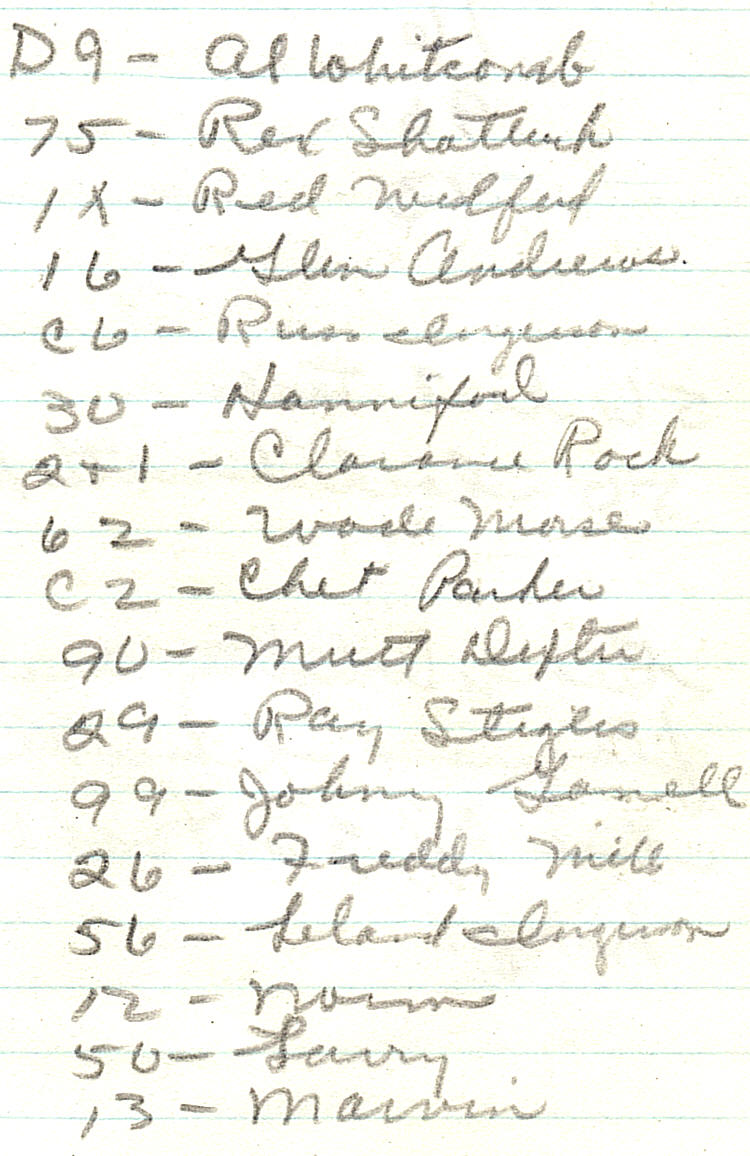 D9 - Al Whitcomb
75 - Rex Shattuck
1X - Red
16 - Glen Andrews.
C6 - Russ Ingerson
30 - Hanniford
2+1 - Clarance Rock
62 - Wade Morse
C2 - Chet Parker
90 - Mutt Dexter
29 - Ray Stygles
99 - Johny
26 - Freddy Mill
56 - Leland Ingerson
12 - Norm
50 - Larry
13 - Marvin